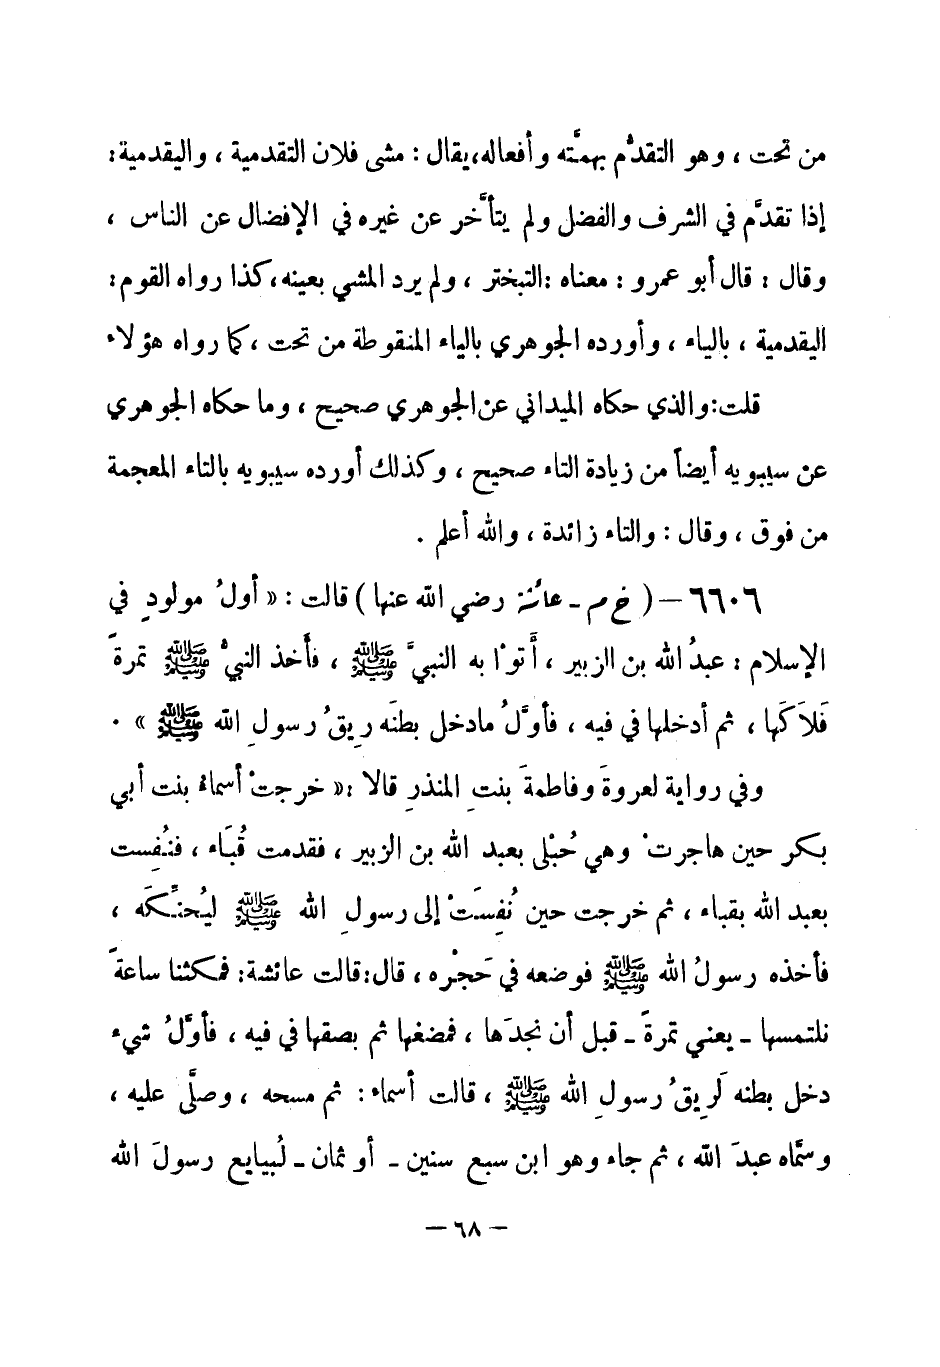 من تحت ، وهو التقدُّم بهمَّته وأفعاله،يقال : مشى فلان التقدمية ، واليقدمية:
إذا تقدَّم في الشرف والفضل ولم يتأَّخر عن غيره في الإفضال عن الناس ،
وقال : قال أبو عمرو : معناه :التبختر ، ولم يرد المشي بعينه،كذا رواه القوم:
اليقدمية ، بالياء ، وأورده الجوهري بالياء المنقوطة من تحت ،كما رواه هؤلاء
قلت:والذي حكاه الميداني عن الجوهري صحيح ، وما حكاه الجوهري
عن سيبويه أيضاً من زيادة التاء صحيح ، وكذلك أورده سيبويه بالتاء المعجمة
من فوق ، وقال : والتاء زائدة ، والله أعلم .
٦٦٠٦ – ( خ م - عائشة رضي الله عنها ) قالت : « أولُ مولودٍ في
الإسلام : عبدُ الله بن الزبير ، أَتوْا به النبيَّ ﷺ ، فأَخذ النبيُّ ﷺ تمرةً
فَلاَكَها ، ثم أدخلها في فيه ، فأوَّلُ مادخل بطنَه رِيقُ رسولِ الله ﷺ » .
وفي رواية لعروةَ وفاطمةَ بنتِ المنذرِ قالا :« خرجتْ أسماءُ بنت أبي
بكر حين هاجرتْ وهي حُبْلى بعبد الله بن الزبير ، فقدمت قُبَاء ، فنُفِست
بعبد الله بقباء ، ثم خرجت حين نُفِسَتْ إلى رسولِ الله ﷺ ليُحنِّكَه ،
فأخذه رسولُ الله ﷺ فوضعه في حَجْره ، قال:قالت عائشة: فمكثنا ساعةً
نلتمسها - يعني تمرةً - قبل أن نجدَها ، فمضغها ثم بصقها في فيه ، فأوَّلُ شيء
دخل بطنه لَرِيقُ رسولِ الله ﷺ ، قالت أسماء : ثم مسحه ، وصلَّى عليه ،
وسمَّاه عبدَ الله ، ثم جاء وهو ابن سبع سنين - أو ثمان - لُيبايع رسولَ الله
– ٦٨ –